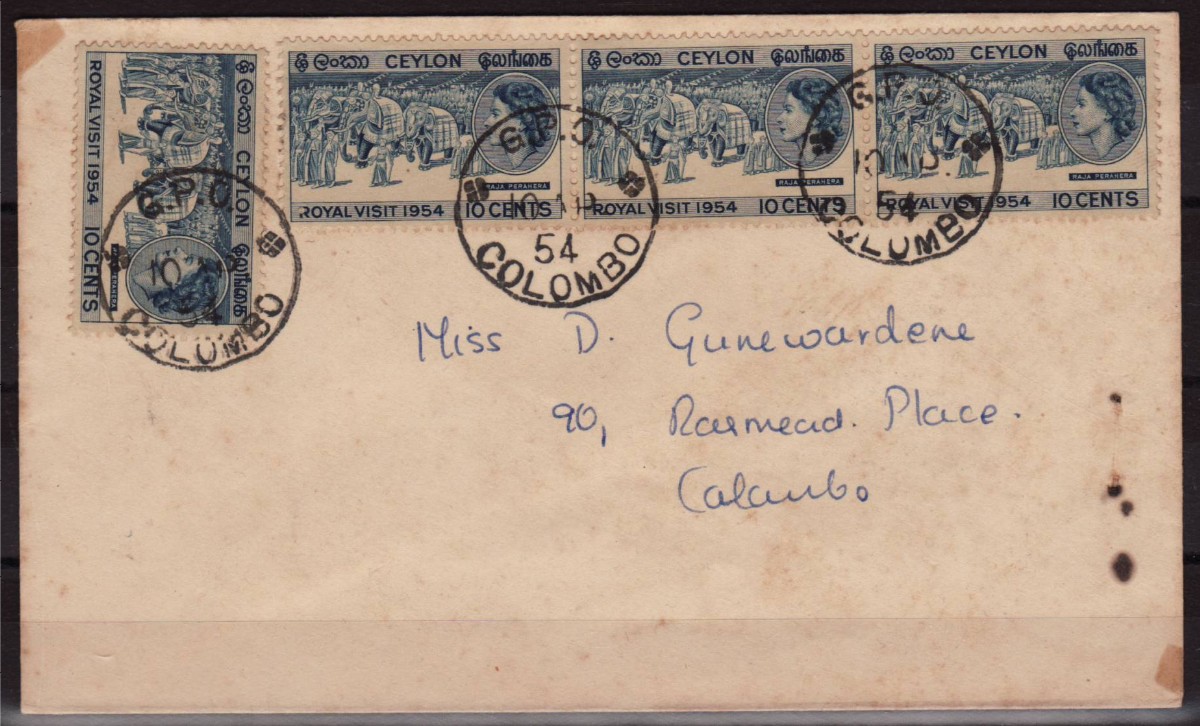 ශ්‍රී ලංකා CEYLON இலங்கை
RAJA PERAHERA
ROYAL VISIT 1954 10 CENTS
ශ්‍රී ලංකා CEYLON இலங்கை
RAJA PERAHERA
ROYAL VISIT 1954 10 CENTS
ශ්‍රී ලංකා CEYLON இலங்கை
RAJA PERAHERA
ROYAL VISIT 1954 10 CENTS
ශ්‍රී ලංකා CEYLON இலங்கை
RAJA PERAHERA
ROYAL VISIT 1954 10 CENTS
G.P.O.
10
54
COLOMBO
G.P.O.
10
54
COLOMBO
G.P.O.
10
54
COLOMBO
Miss D. Gunewardene
90, Rosmead. Place.
Colombo